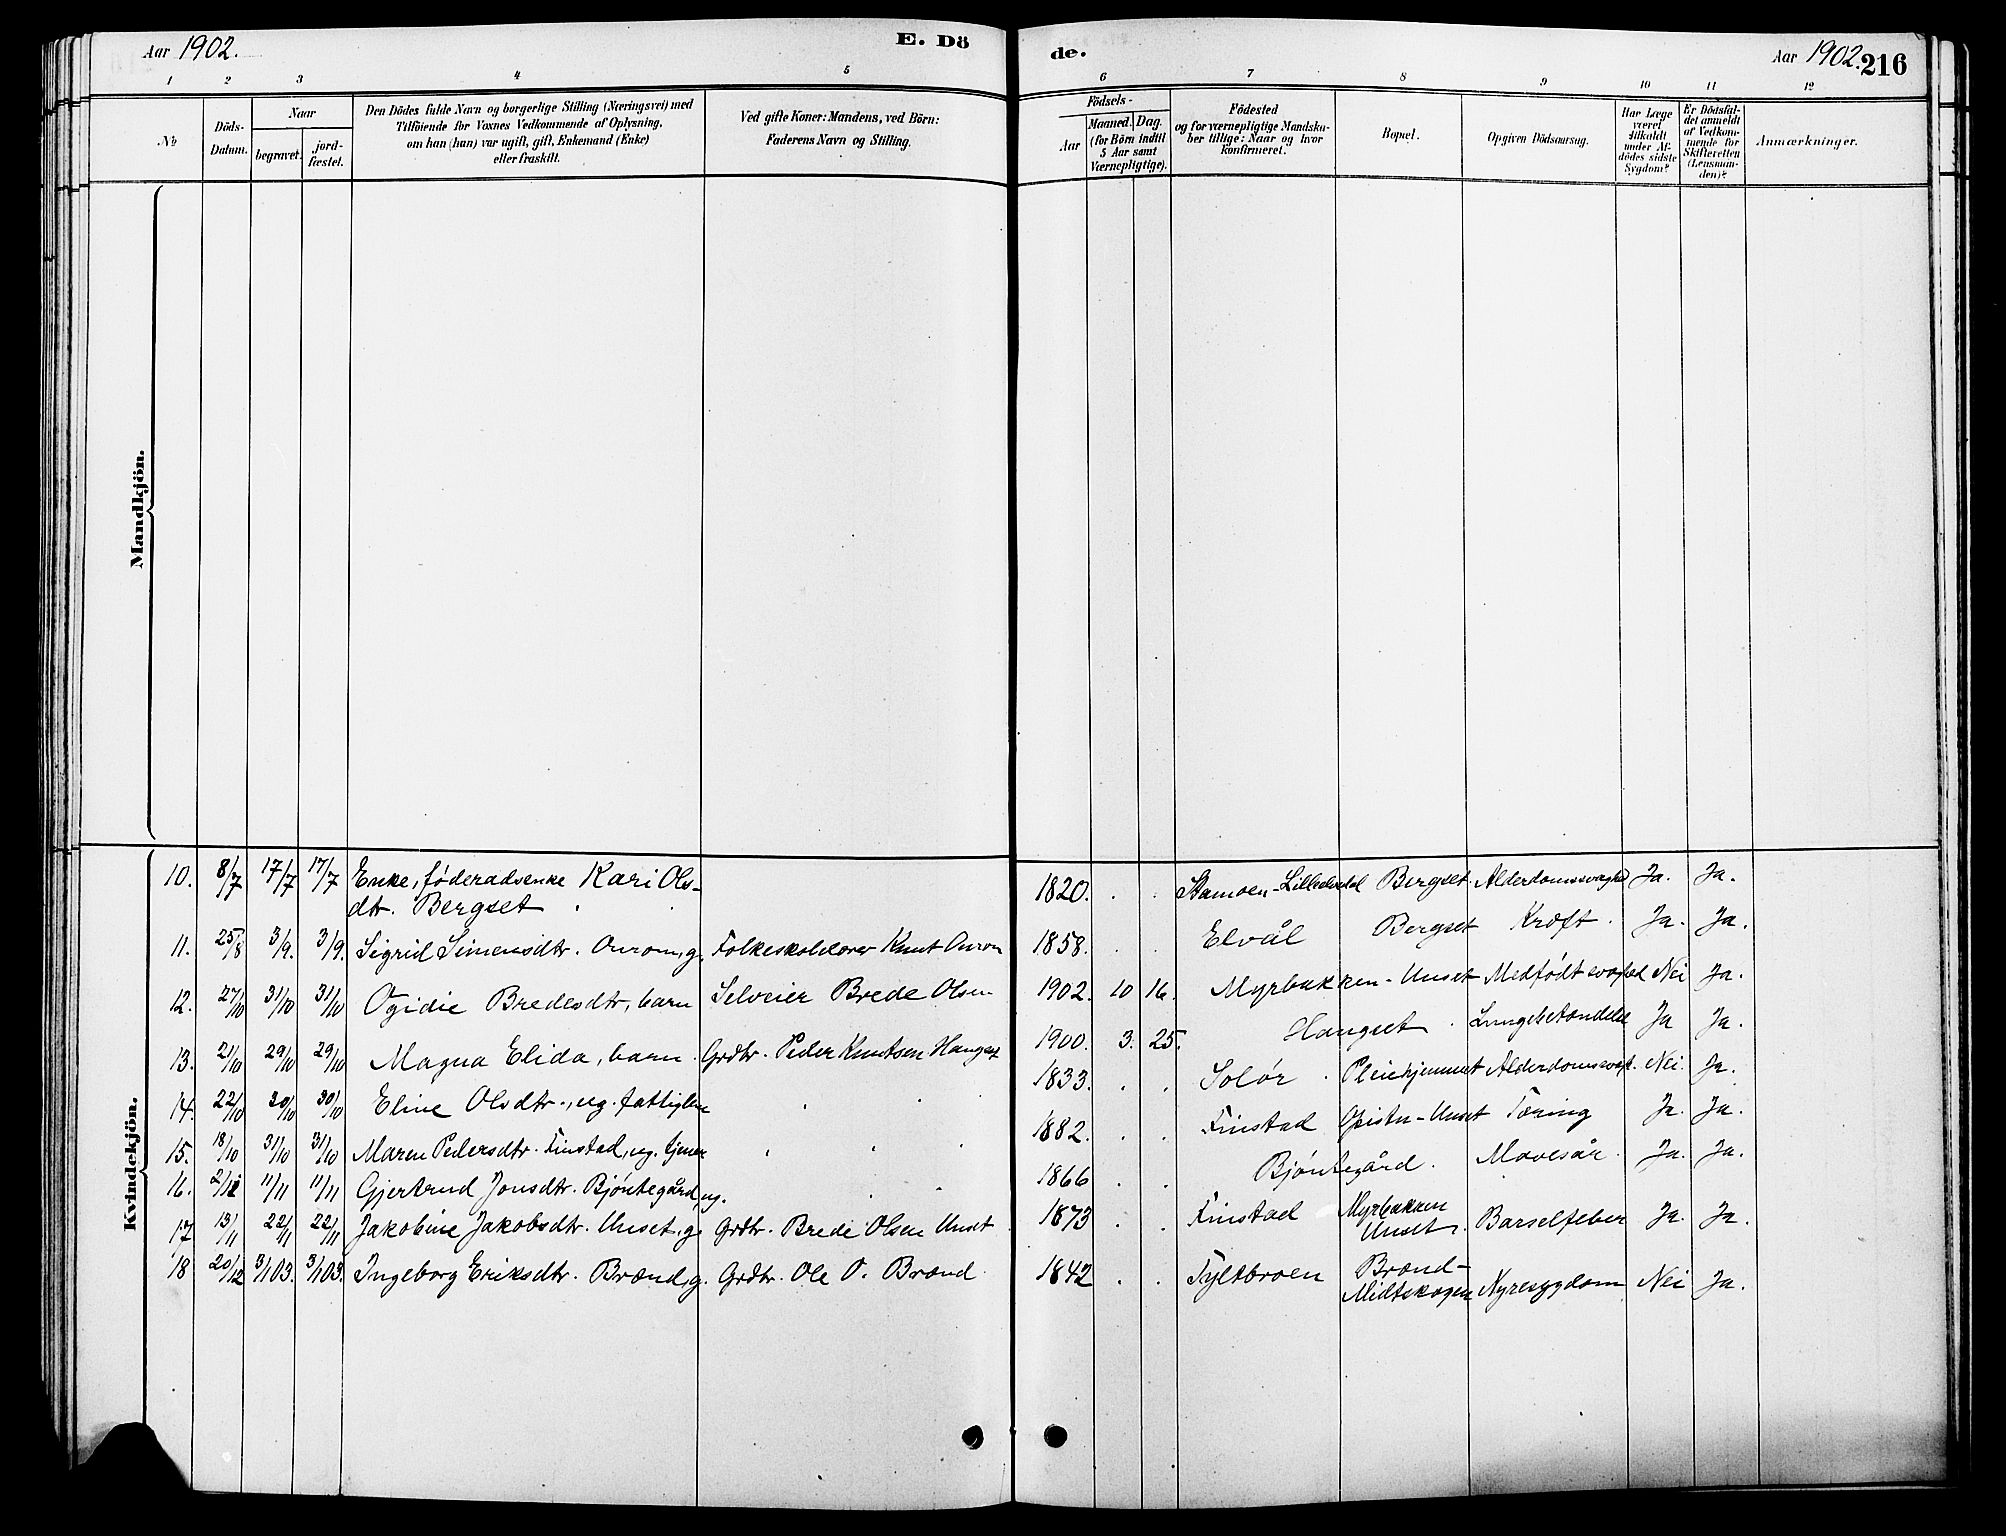 Aar 1902.
E. Dö
de.
Aar 1902. 216
1 2 3 4 5 6 7 8 9 10 11 12
No
Döds-Datum.
Naar
begravet.
jord-fæstet.
Den Dödes fulde Navn og borgerlige Stilling (Næringsvei) med
Tilföiende for Voxnes Vedkommende af Oplysning,
om han (hun) var ugift, gift, Enkemand (Enke)
eller fraskilt.
Ved gifte Koner: Mandens, ved Börn:
Faderens Navn og Stilling.
Födsels-
Aar
Maaned. Dag.
(for Börn indtil
5 Aar samt
Værnepligtige).
Födested
og for værnepligtige Mandska-
ber tillige: Naar og hvor
konfirmeret.
Bopæl.
Opgiven Dödsaarsag.
Har Læge
været
tilkaldt
under Af-
dödes sidste
Sygdom?
Er Dödsfal-
det anmeldt
af Vedkom-
mende for
Skifteretten
(Lensman-
den)?
Anmærkninger.
Mandkjön.
Kvindekjön.
10. 8/7 17/7 17/7 Enke, föderadsenke Kari Ols- 1820. . . Stamoen-Lilleelvedal Bergset. Alderdomssvaghed Ja. Ja.
dtr. Bergset
11. 25/8 3/9. 3/9. Sigrid Simensdtr. g. Folkeskolelærer Knut 1858. . . Elvål Bergset Kræft. Ja. Ja.
12. 27/10 31/10 31/10 Ogidie Bredesdtr, barn Selveier Brede Olsen 1902. 10 16. Myrbakken-Unset Medfödt svaghed Nei Ja.
13. 21/10 29/10 29/10 Magna Elida, barn. Grdtr. Peder Knutsen Hangset 1900. 3. 25. Hangset. Lungebetændelse Ja Ja.
14. 22/10 30/10 30/10 Eline Olsdtr., ug. fattiglem 1833. . . Solör. Pleiehjemmet Alderdomssvagh. Nei. Ja.
15. 18/10 31/10 31/10 Maren Pedersdtr. Finstad, ug. tjener 1882. . . Finstad Opistu-Unset Tæring Ja. Ja.
16. 11/11 11/11 Gjertrud Jonsdtr. Bjöntegård, ug. 1866 . . Bjöntegård. Mavesår. Ja. Ja.
17 13/11 22/11 22/11 Jakobine Jakobsdtr. Unset, g. Grdtr. Brede Olsen Unset 1873 . . Finstad Myrbakken Unset. Barselfeber Ja. Ja.
18 20/12 3/1 03. 3/1 03. Ingeborg Eriksdtr. Brænd, g. Grdtr. Ole O. Brænd. 1842 . . Tyltbroen Brænd-Midtskogen Nyresygdom Nei Ja.